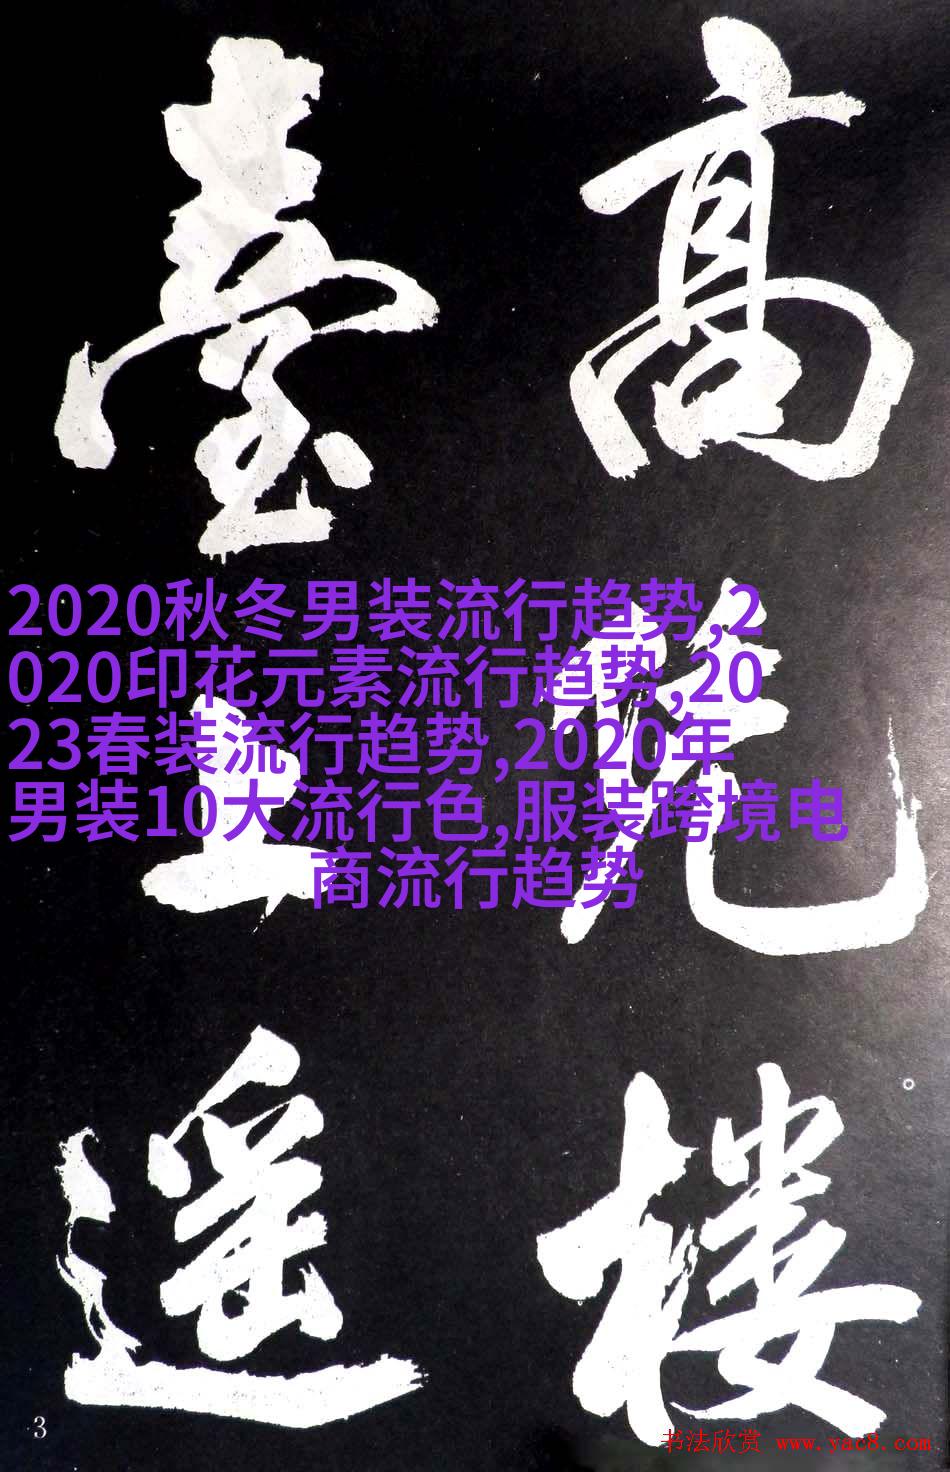 高
楼
臺上遥
2020秋冬男装流行趋势,2
020印花元素流行趋势,20
23春装流行趋势,2020年
男装10大流行色,服装跨境电
商流行趋势
3
书法欣赏 www.yac8.com